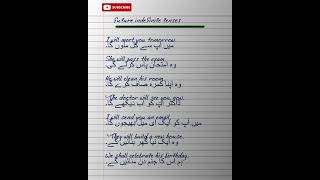 SUBSCRIBE
Future indefinite tenses
I will meet you tomorrow.
میں آپ سے کل ملوں گا۔
She will pass the exam.
وہ امتحان پاس کرلے گی۔
He will clean his room.
وہ اپنا کمرہ صاف کرے گا۔
The doctor will see you now.
ڈاکٹر آپ کو اب دیکھے گا۔
I will send you an email.
میں آپ کو ایک ای میل بھیجوں گا۔
They will build a new house.
وہ ایک نیا گھر بنائیں گے۔
We shall celebrate his birthday.
ہم اس کا جنم دن منائیں گے۔